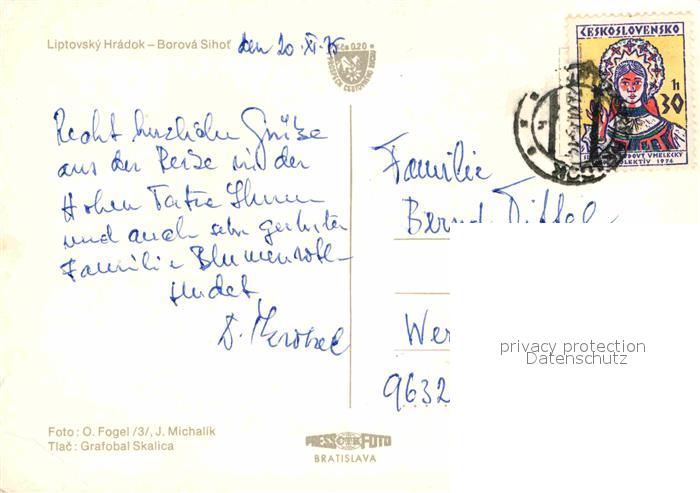 Liptovský Hrádok – Borová Sihoť den 20. XI. 75
Kčs 0,20
ČESKOSLOVENSKO
30 h
ĽUDOVÝ UMELECKÝ
KOLEKTÍV 1974
Recht herzliche Grüße
aus der Reise in der
Hohen Tatra
und auch sehr geehrter
Familie Blumenroth
sendet
D.
Familie
Bernd
Wer
9632
privacy protection
Datenschutz
Foto: O. Fogel /3/, J. Michalík
Tlač: Grafobal Skalica
PRESSFOTO
BRATISLAVA